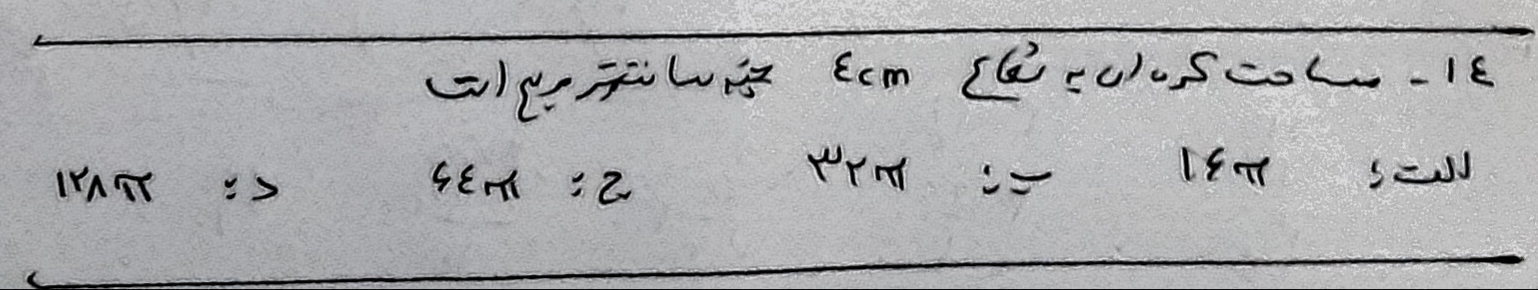 ١٤- مساحت کره ای به شعاع ٤cm چند سانتی متر مربع است
الف: ۱۶π ب: ۳۲π ج: ۶٤π د: ۱۲۸π